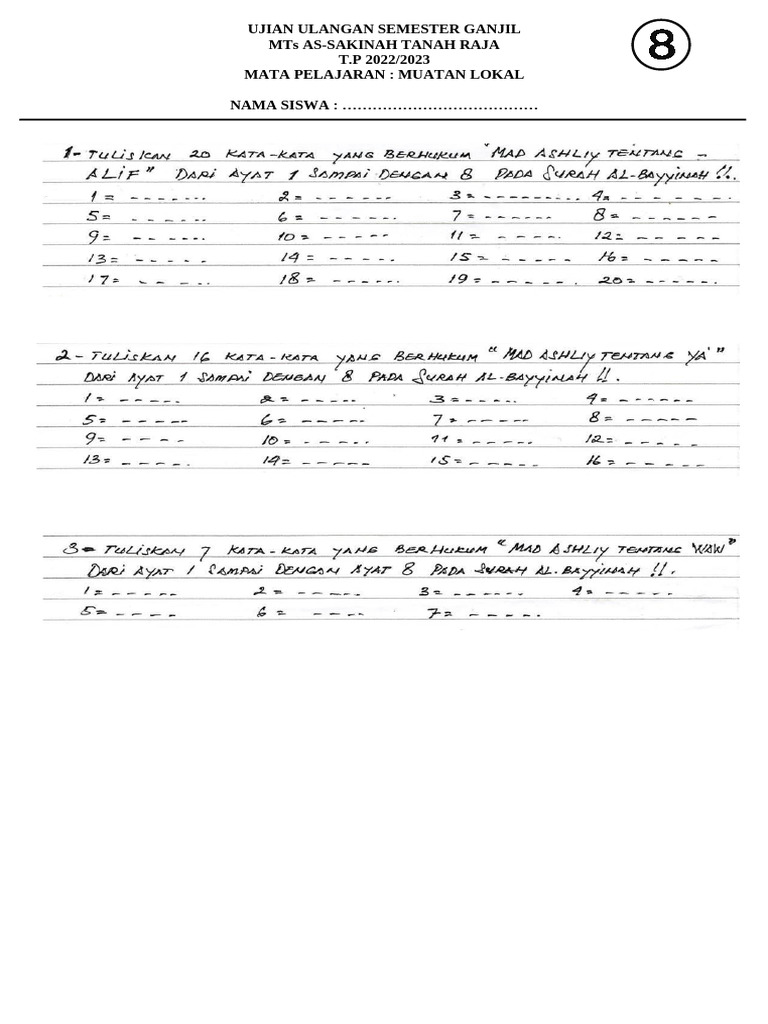 UJIAN ULANGAN SEMESTER GANJIL
MTs AS-SAKINAH TANAH RAJA
T.P 2022/2023
MATA PELAJARAN : MUATAN LOKAL
8
NAMA SISWA : …………………………………
1- TULISKAN 20 KATA-KATA YANG BERHUKUM "MAD ASHLIY TENTANG -
ALIF" DARI AYAT 1 SAMPAI DENGAN 8 PADA SURAH AL-BAYYINAH !!.
1 = - - - - - - - 2 = - - - - - - - 3 = - - - - - - - - - 4 = - - - - - - -
5 = - - - - - - - 6 = - - - - - - - 7 = - - - - - - - 8 = - - - - - -
9 = - - - - - - 10 = - - - - - - 11 = - - - - - - 12 = - - - - - -
13 = - - - - - 14 = - - - - - - 15 = - - - - - - 16 = - - - - - -
17 = - - - - - 18 = - - - - - - 19 = - - - - - - - 20 = - - - - - -
2- TULISKAN 16 KATA-KATA YANG BERHUKUM "MAD ASHLIY TENTANG YA'"
DARI AYAT 1 SAMPAI DENGAN 8 PADA SURAH AL-BAYYINAH !!.
1 = - - - - - 2 = - - - - - - 3 = - - - - - 4 = - - - - - -
5 = - - - - - 6 = - - - - - - 7 = - - - - - 8 = - - - - - -
9 = - - - - 10 = - - - - - - 11 = - - - - - - 12 = - - - - - -
13 = - - - - - 14 = - - - - - - 15 = - - - - - 16 = - - - - - -
3= TULISKAN 7 KATA-KATA YANG BERHUKUM "MAD ASHLIY TENTANG WAW"
DARI AYAT 1 SAMPAI DENGAN AYAT 8 PADA SURAH AL-BAYYINAH !!.
1 = - - - - - - 2 = - - - - - 3 = - - - - - - 4 = - - - - -
5 = - - - - 6 = - - - - 7 = - - - - - -